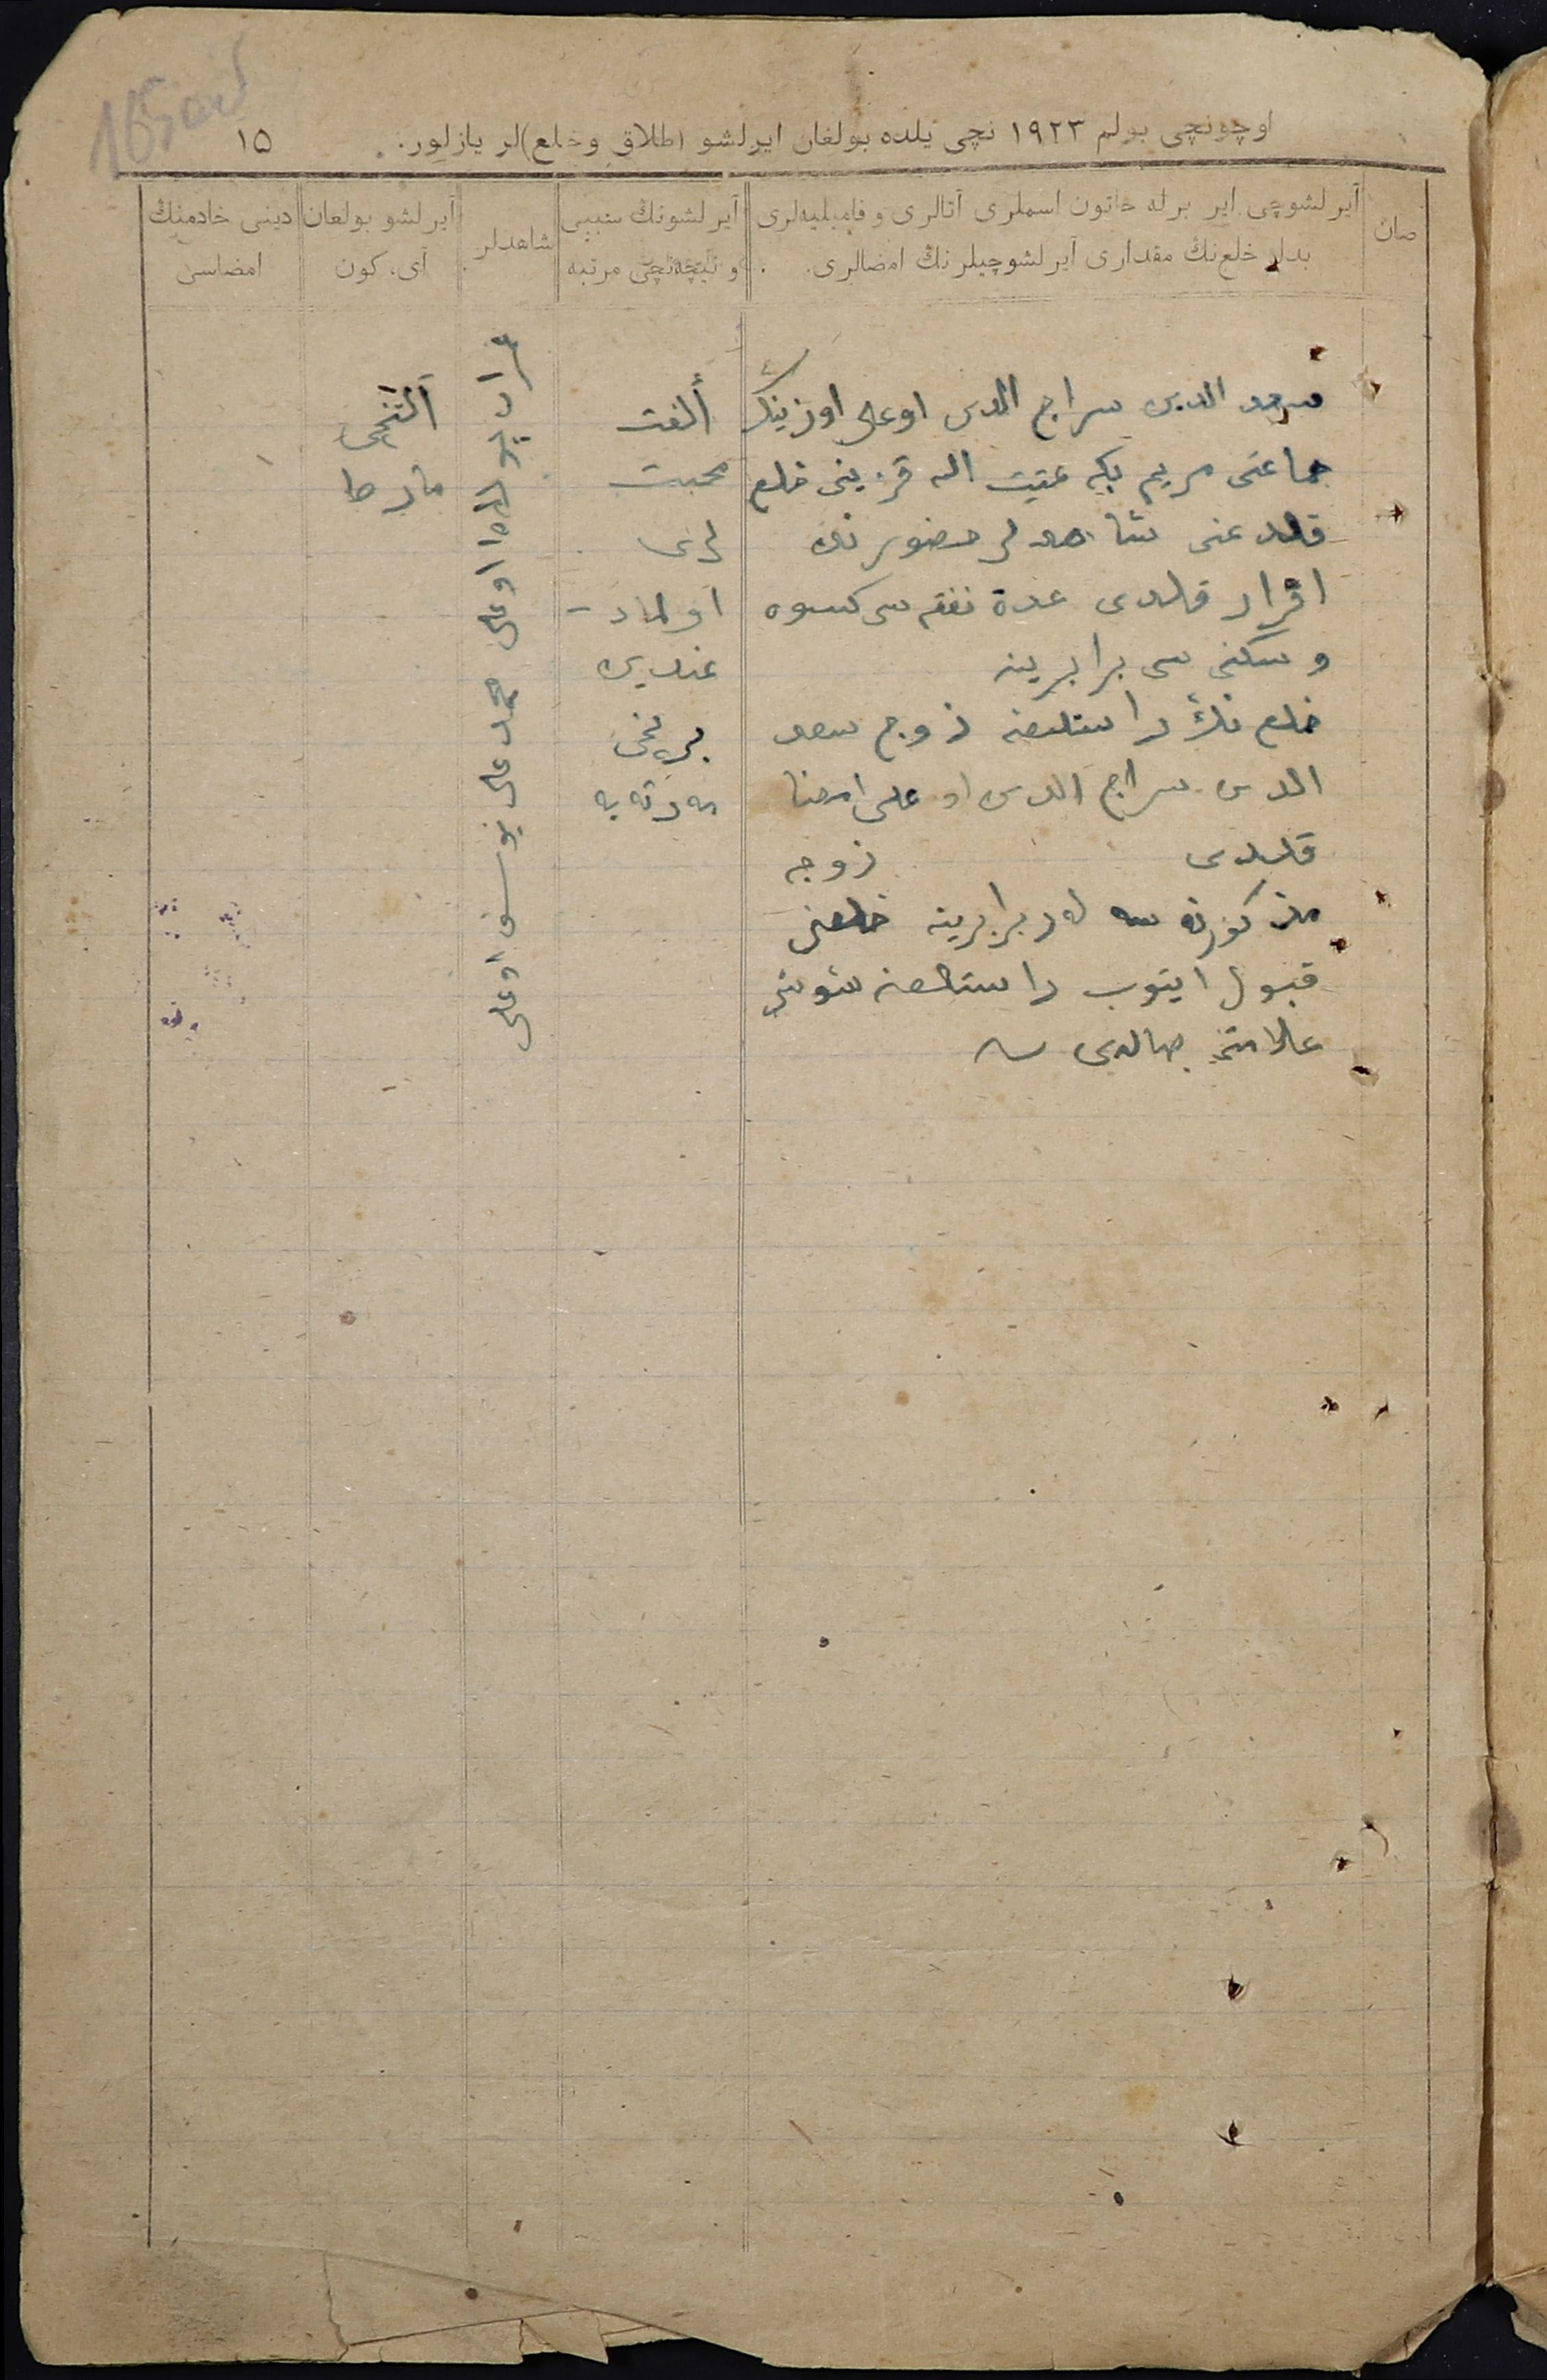 اوچونچی بولم ۱۹۲۳ نچی یلده بولغان ایرلشو (طلاق وخلع)لر یازلور.
۱۵
صان
آیرلشوچی ایر برله خاتون اسملری آتالری و فامیلیه‌لری
بدل خلع‌نڭ مقداری آیرلشوچیلرنڭ امضالری.
آیرلشونڭ سببی
و نیچه‌نچی مرتبه
شاهدلر
آیرلشو بولغان
آی، کون
دینی خادمنڭ
امضاسی
سعد الدین سراج الدین اوغلی اوزینڭ
جماعتی مریم بیکه قزینی خلع
قلدغنی شاهدلر حضورنده
اقرار قلدی عدة نفقه سی کسوه
و سکنی سی برابرینه
خلع نڭ راستلغنه زوج سعد
الدین سراج الدین اوغلی امضا
قلدی زوجه
مذکوره برابرینه خلعنی
قبول ایتوب راستلغنه شوشی
علامتنی صالدی
ألفت
محبت
لری
اولماد-
غندین
برنچی
مه‌رته‌به
اوغلی محمد علی یوسف اوغلی
آلتنچی
مارط